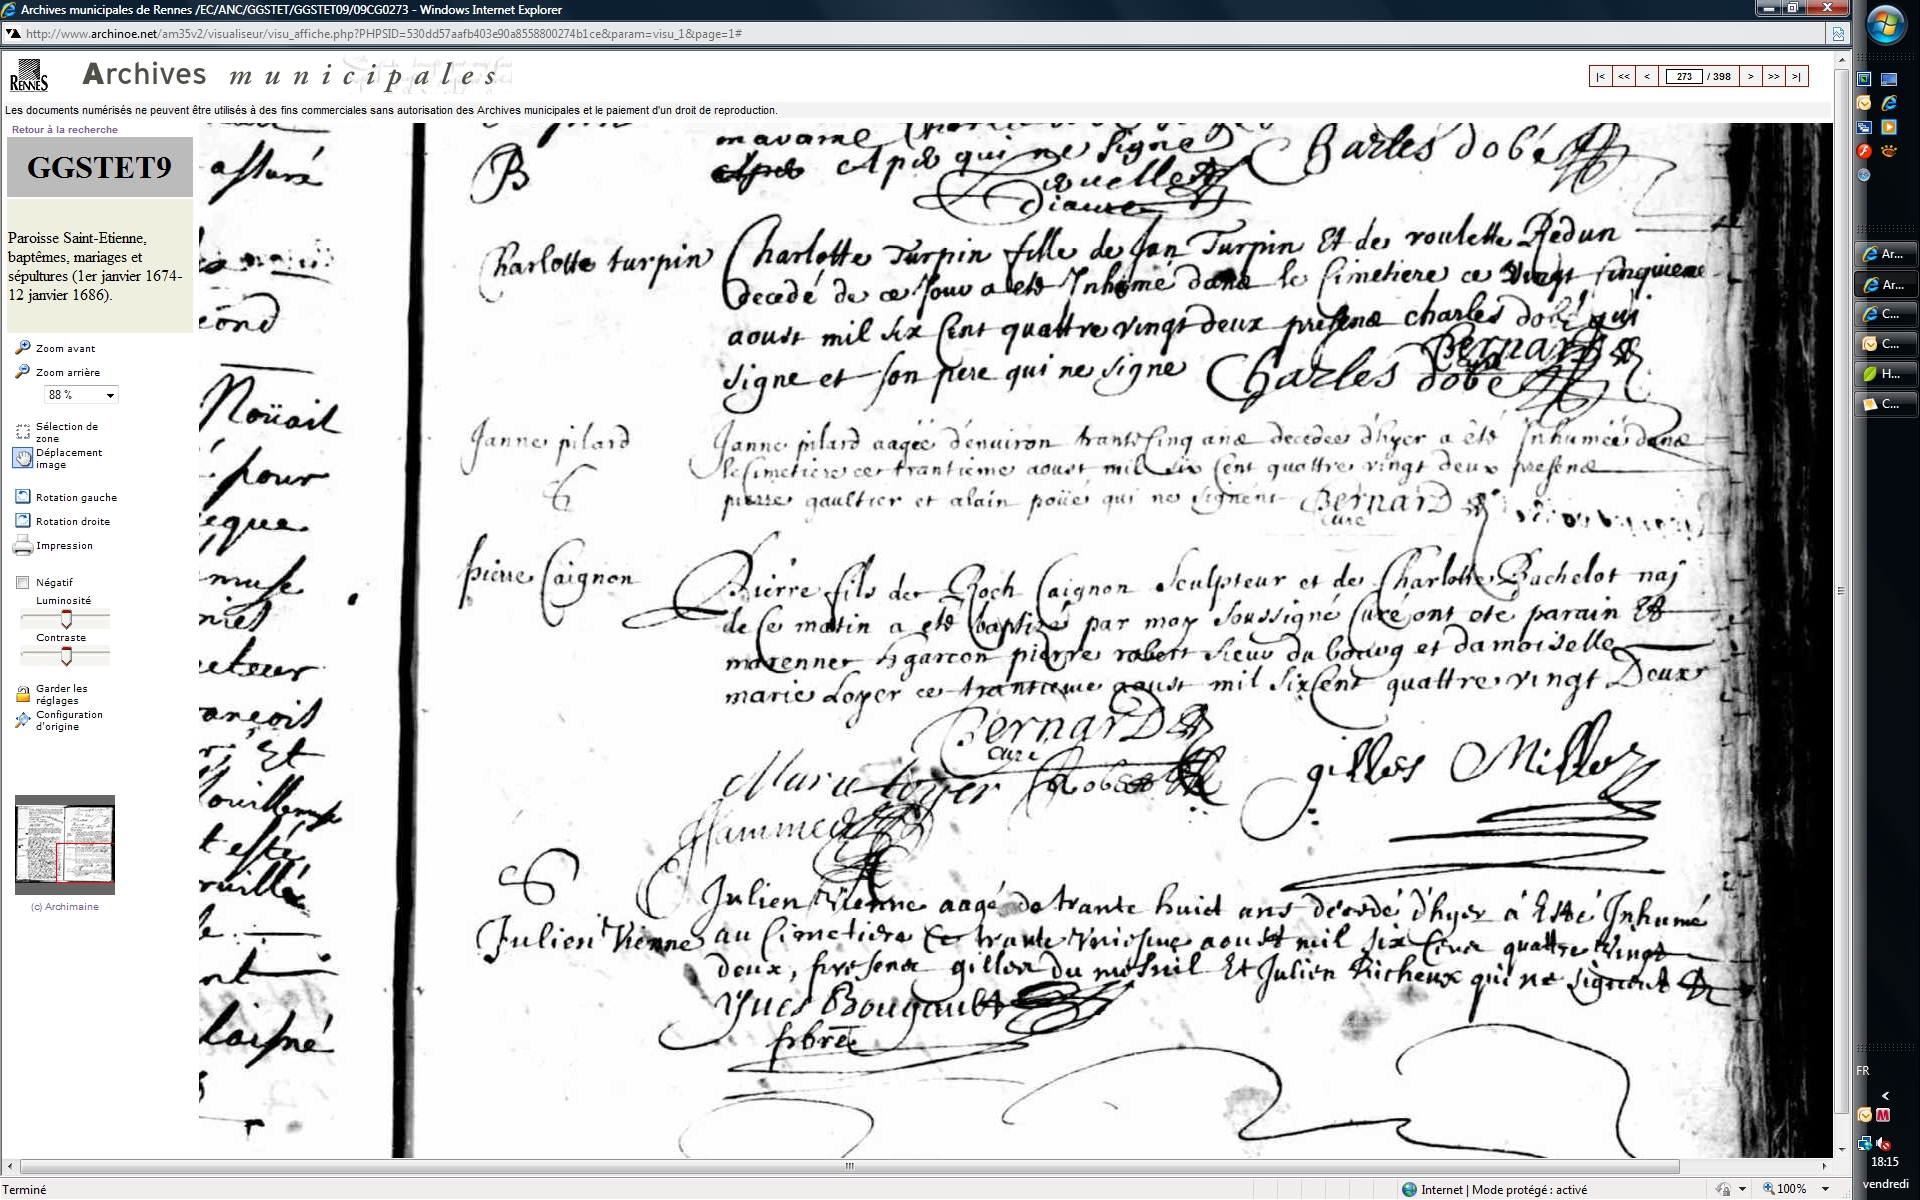 Archives municipales de Rennes /EC/ANC/GGSTET/GGSTET09/09CG0273 - Windows Internet Explorer
http://www.archinoe.net/am35v2/visualiseur/visu_affiche.php?PHPSID=530dd57aafb403e90a8558800274b1ce&param=visu_1&page=1#
RENNES
Archives municipales
|< << < 273 / 398 > >> >|
Les documents numérisés ne peuvent être utilisés à des fins commerciales sans autorisation des Archives municipales et le paiement d'un droit de reproduction.
Retour à la recherche
GGSTET9
Paroisse Saint-Etienne,
baptêmes, mariages et
sépultures (1er janvier 1674-
12 janvier 1686).
Zoom avant
Zoom arrière
88 %
Sélection de
zone
Déplacement
image
Rotation gauche
Rotation droite
Impression
Négatif
Luminosité
Contraste
Garder les
réglages
Configuration
d'origine
(c) Archimaine
assuré
Noüail
pour
qui ne signe
Charles dobé
B
Charlotte turpin
Charlotte Turpin fille de Jan Turpin Et de roulette Redun
decedé de ce Jour a eté Inhumé dans le Cimetiere ce vingt sinquieme
aoust mil six Cent quattre vingt deux presens charles dobé qui
signe et son pere qui ne signe Charles dobé
Bernard
Janne pilard
S
Janne pilard aagée d'environ trante sinq ans decedee d'hyer a été Inhumée dans
le Cimetiere ce trantieme aoust mil six Cent quattre vingt deux presens
pierre gaultier et alain poüé qui ne signent Bernard
curé
pierre Caignon
Pierre fils de Roch Caignon Sculpteur et de Charlotte Bachelot nay
de Ce matin a eté baptisé par moy soussigné Curé ont ete parain Et
marenne garcon pierre robert sieur du bourg et damoiselle
marie Loyer ce trantieme aoust mil six Cent quattre vingt Deux
Bernard
curé
Marie Loyer Robert gilles Millet
S
Julien Vienne
Julien Vienne aagé de trante huict ans decedé d'hyer à Esté Inhumé
au Cimetiere Ce trante aoust mil six Cens quattre vingt
deux, presens gilles du mesnil Et Julien Richeux qui ne signent
Yves Bougault
pbre
Terminé
Internet | Mode protégé : activé
100%
Ar...
Ar...
C...
C...
H...
C...
FR
18:15
vendredi